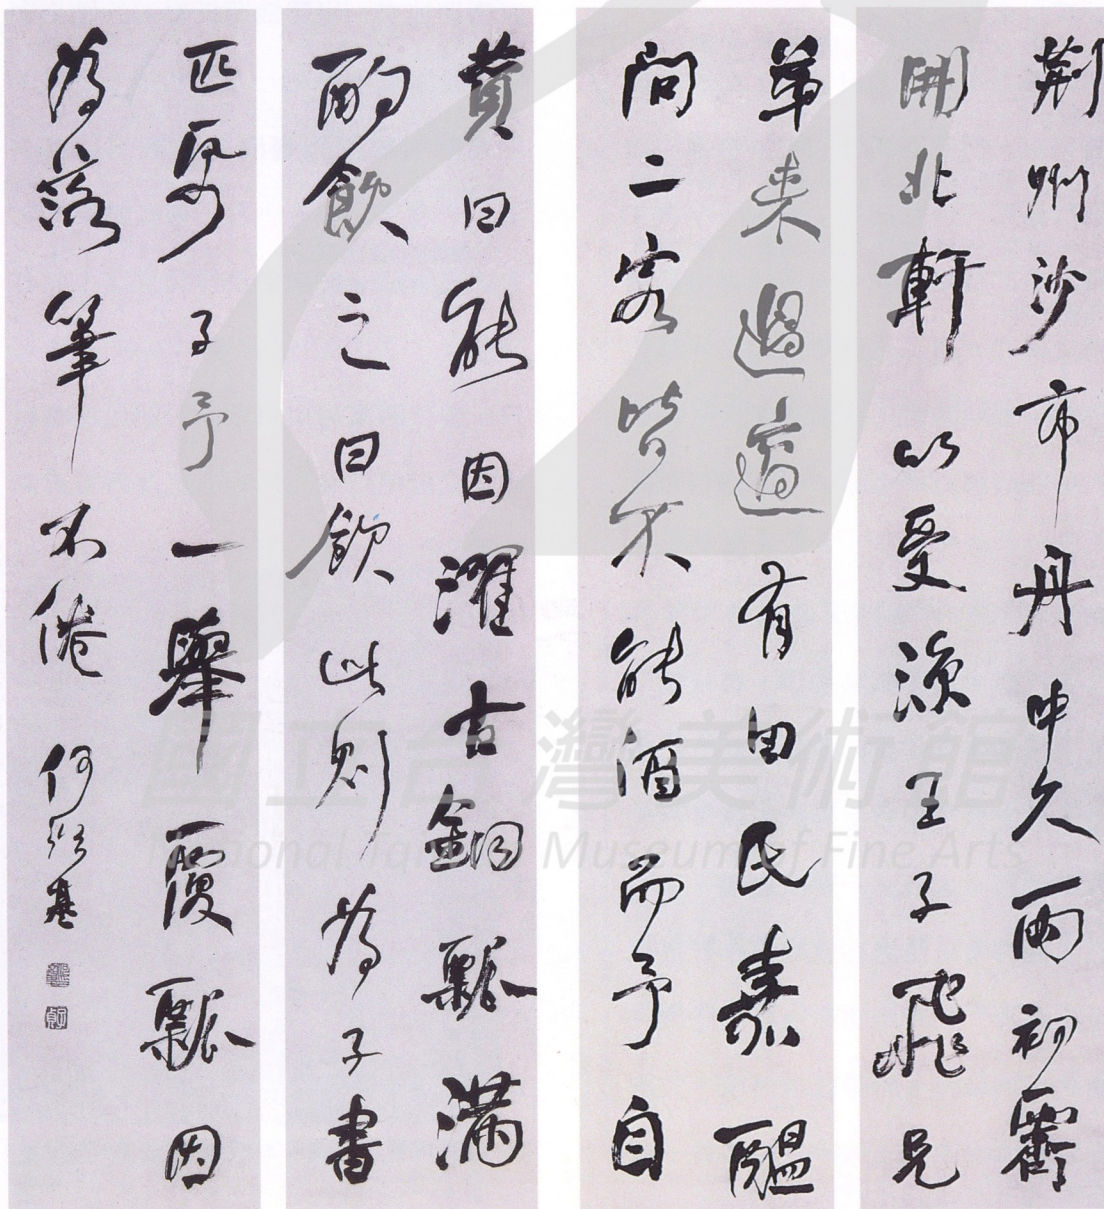 荆州沙市舟中久雨初霽
開北軒以受涼王子飛兄
弟来過適有田氏嘉醖
問二客皆不能酒而予自
贊曰能因濯古銅瓢滿
酌飲之曰飲此則為子書
匹子予一舉覆瓢因
為落筆不倦 何紹基
國立台灣美術館
National Taiwan Museum of Fine Arts